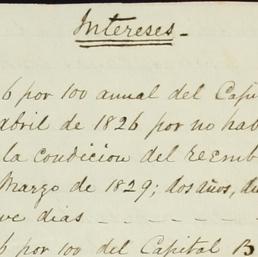 Intereses_
6 por 100 anual del Capi
abril de 1826 por no hab
la condicion del reemb
Marzo de 1829; dos años, di
ve dias
6 por 100 del Capital B